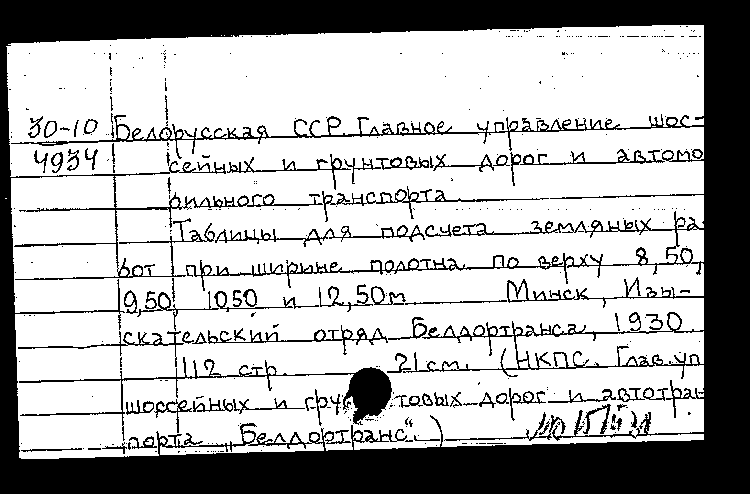 30-10 Белорусская ССР. Главное управление шос-
4934 сейных и грунтовых дорог и автомо
бильного транспорта
Таблицы для подсчета земляных ра-
бот при ширине полотна по верху 8,50,
9,50, 10,50 и 12,50м Минск, Изы-
скательский отряд Белдортранса, 1930
112 стр. 21 см. (НКПС. Глав. уп
шоссейных и грунтовых дорог и автотран
порта „Белдортранс“.)